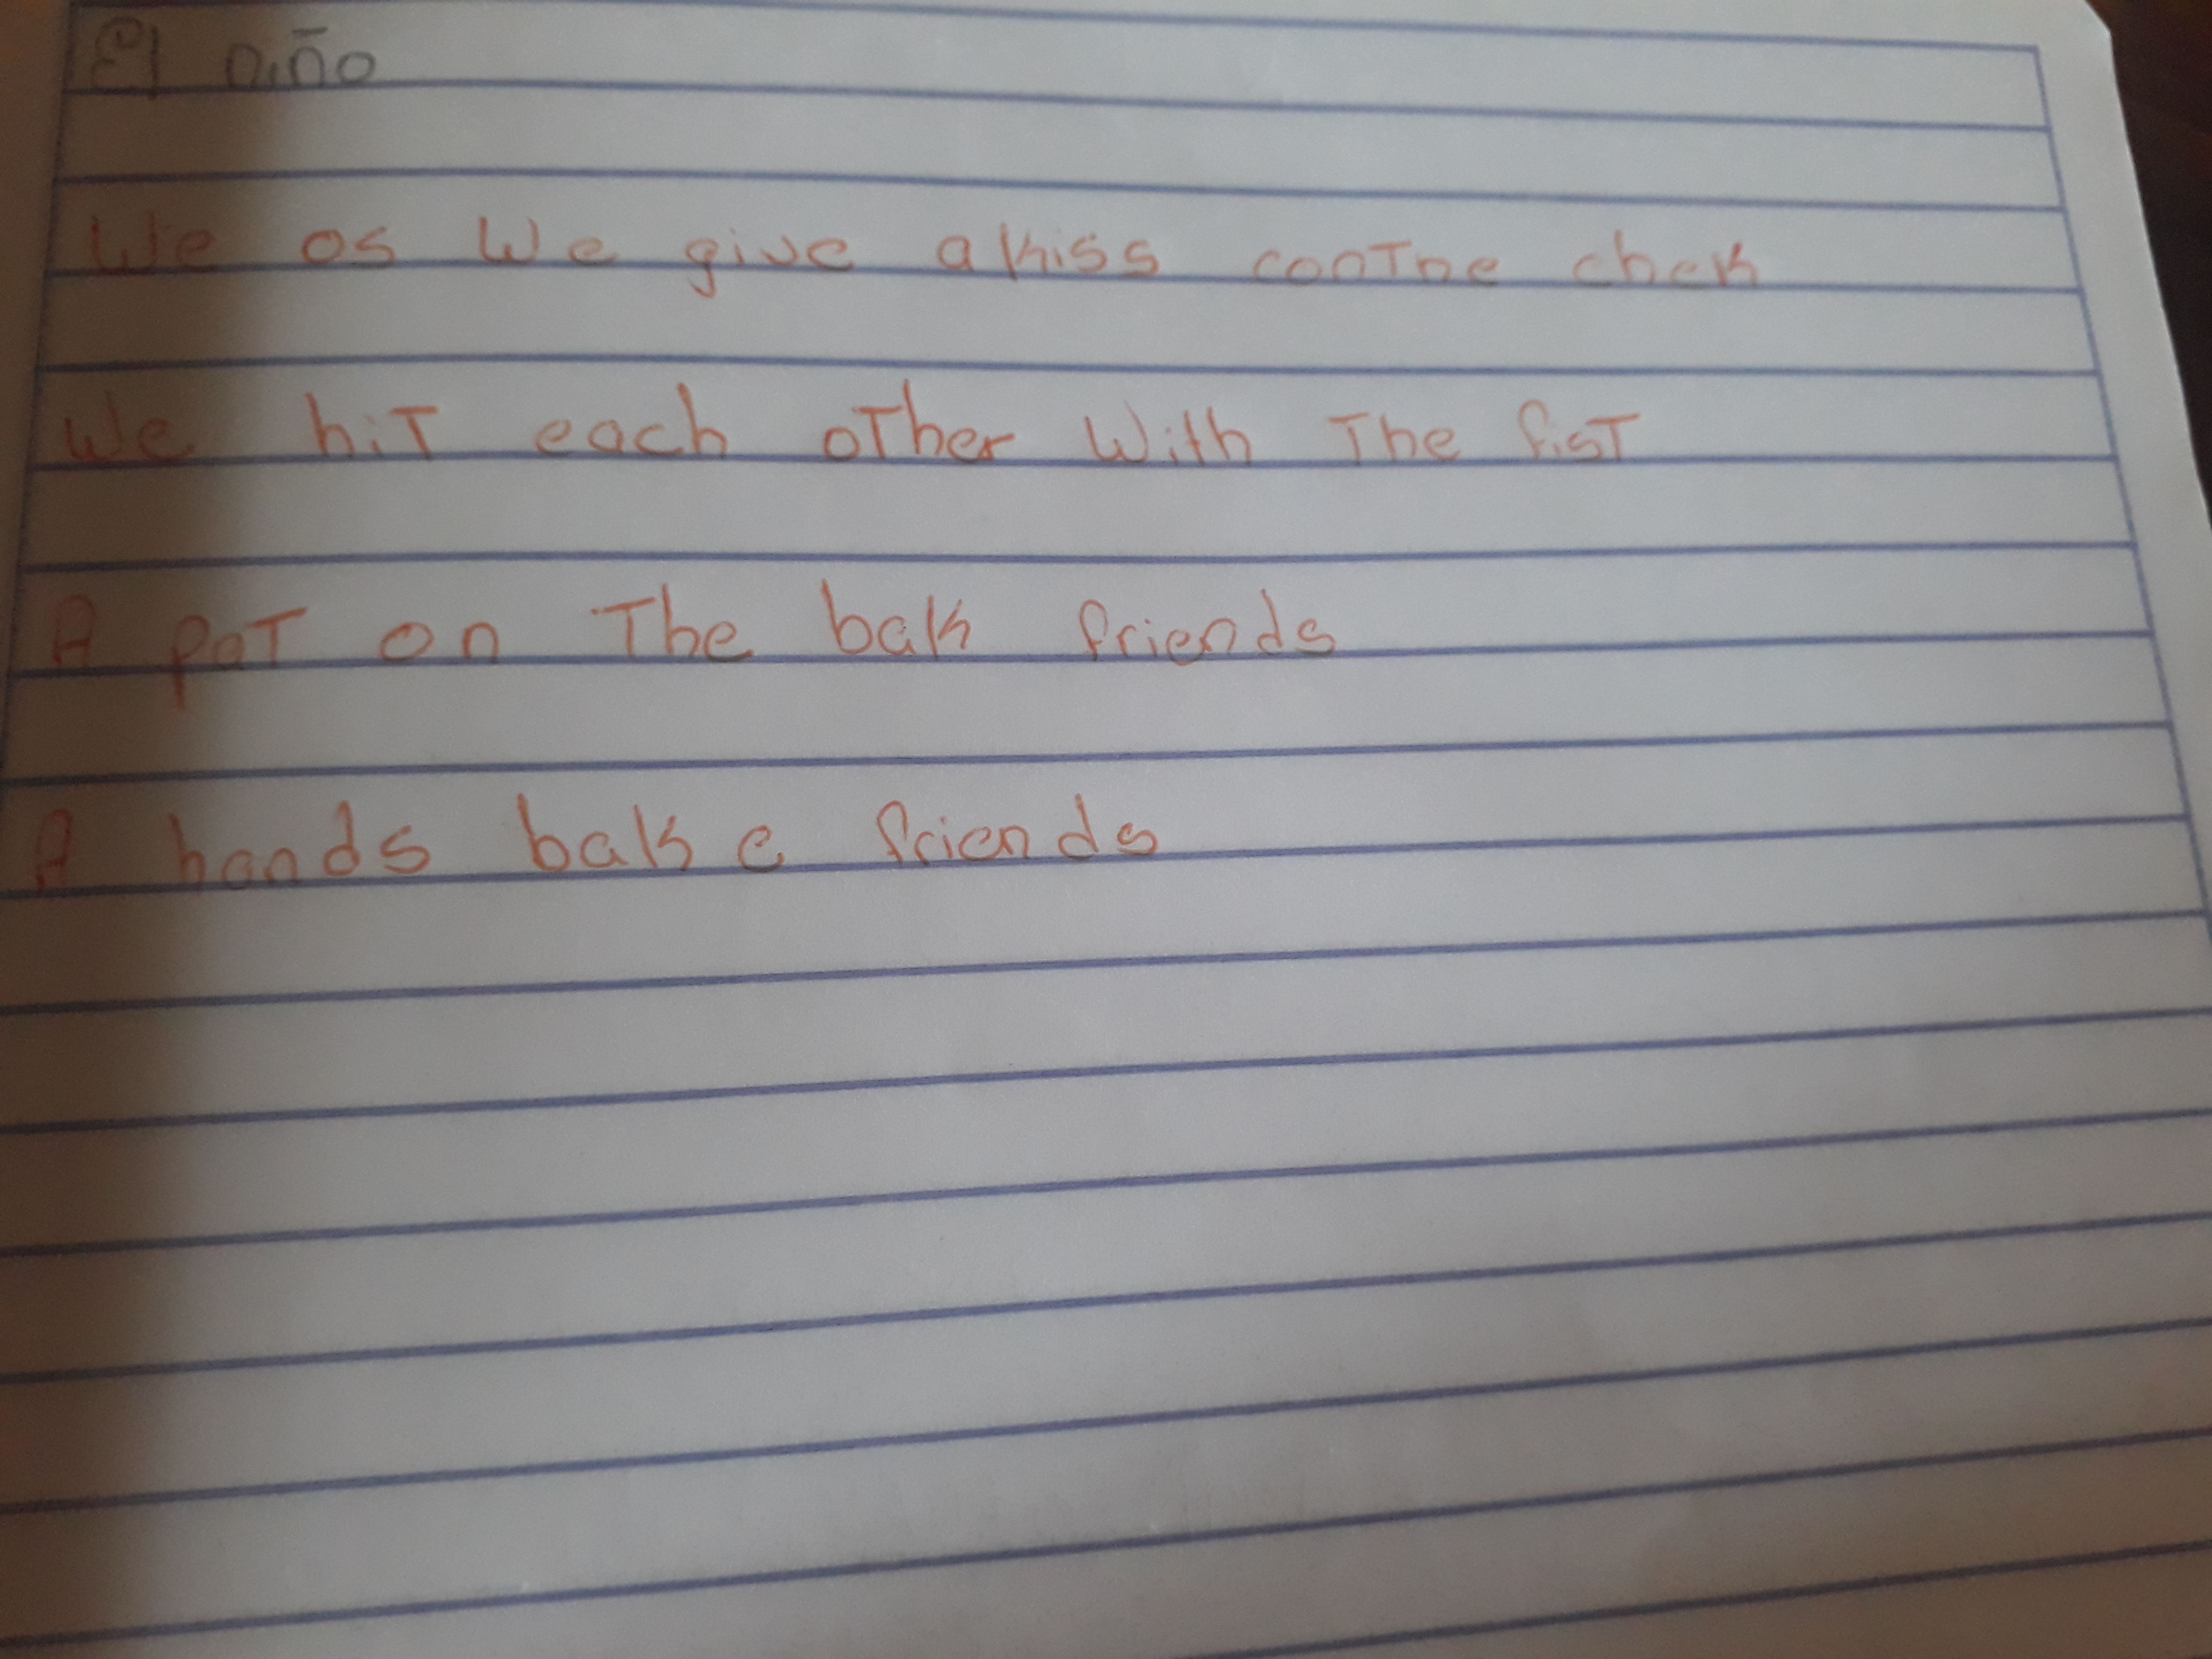 El niño
We os We give a kiss conThe chek
We hiT each oTher With The fisT
A paT on The bak friends
A hands bak e friends